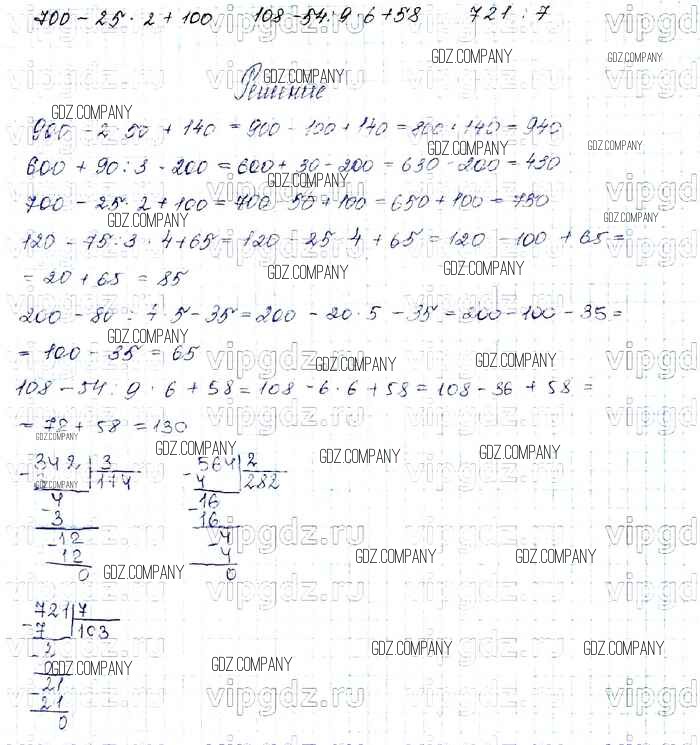 700 - 25 · 2 + 100    108 - 54 : 9 · 6 + 58    721 : 7
Решение
900 - 2 · 50 + 140 = 900 - 100 + 140 = 800 + 140 = 940
600 + 90 : 3 - 200 = 600 + 30 - 200 = 630 - 200 = 430
700 - 25 · 2 + 100 = 700 - 50 + 100 = 650 + 100 = 750
120 - 75 : 3 · 4 + 65 = 120 - 25 · 4 + 65 = 120 - 100 + 65 =
= 20 + 65 = 85
200 - 80 : 4 · 5 - 35 = 200 - 20 · 5 - 35 = 200 - 100 - 35 =
= 100 - 35 = 65
108 - 54 : 9 · 6 + 58 = 108 - 6 · 6 + 58 = 108 - 36 + 58 =
= 72 + 58 = 130
342 | 3    564 | 2
114    - 4    282
4    16
- 3    - 16
- 12    - 4
12    4
0    0
721 | 7
- 7    103
- 2
0
- 21
21
0
GDZ.COMPANY
vipgdz.ru